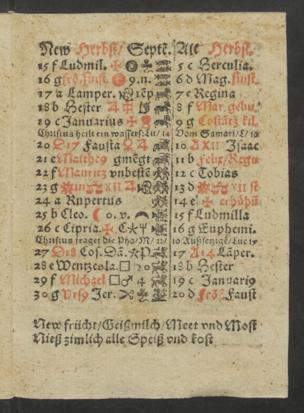 New Herbst/ Septē. Alt Herbst.
15 f Ludmil. 5 c Herculia.
16 g fro. funst. 9.n. 6 d Mag. funst.
17 a Lamper. 7 e Regina
18 b Hester 8 f Mar. gebu.
19 c Januarius 9 g
Christus heilt ein wassers. Lu/14 Vom Samari/
20 Fausta 10 Isaac
21 e Mattheo gmēgt 11 b Felix/Regu
22 f Mauritz vnbestē 12 c Tobias
23 g 13 d
24 a Rupertus 14 e erhöhū
25 b Cleo. o. v. 15 f Ludmilla
26 c Cipria. 16 g Euphemi.
Christus fraget die Pha/M/22/ 10 Aussetzige/Luc 17
27 Cos. Dā. 17 Läper.
28 e Wentzesla. 18 b Hester
29 f Michael 19 c Januari9
30 g Urs9 Jer. 20 d Faust
New frücht/Geißmilch/Meet vnd Most
Nieß zimlich alle Speiß vnd kost